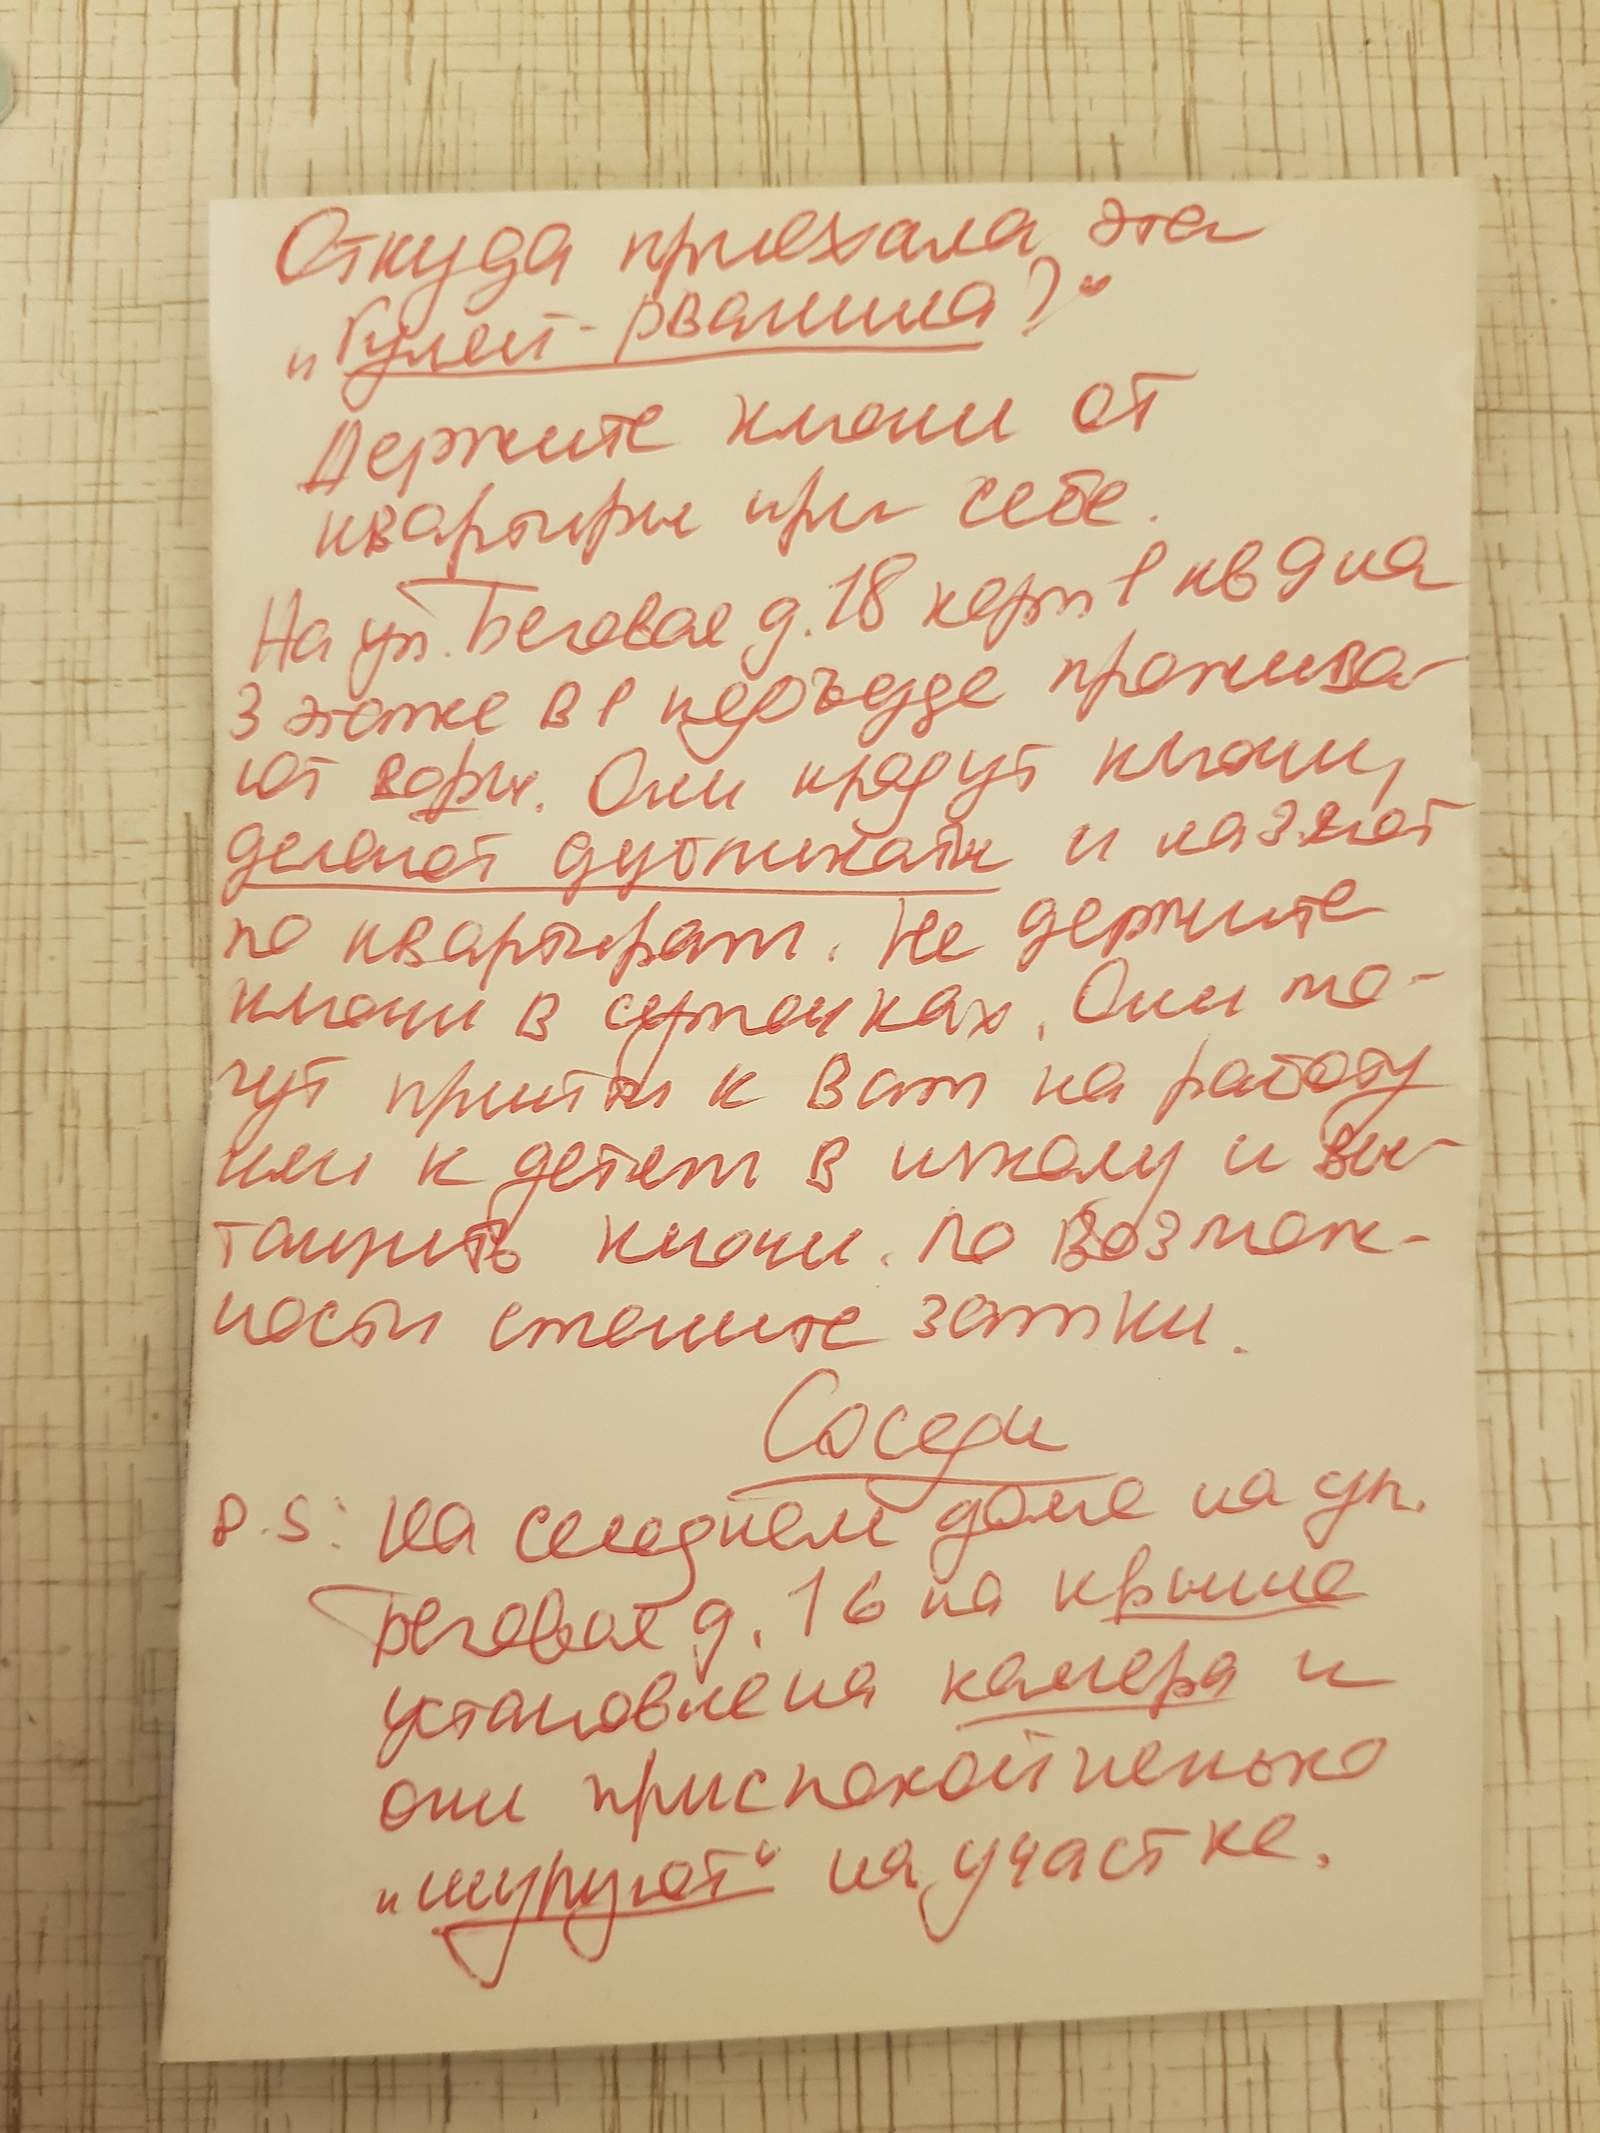 Откуда приехала эта
„Гулей-рванина?“
Держите ключи от
квартиры при себе.
На ул. Беговая д. 18 корп 1 кв 9 на
3 этаже в 1 подъезде прожива-
ют воры. Они крадут ключи,
делают дубликаты и лазяют
по квартирам. Не держите
ключи в сумочках. Они мо-
гут прийти к Вам на работу
или к детям в школу и вы-
тащить ключи. По возмож-
ности смените замки.
Соседи
P.S: На соседнем доме на ул.
Беговая д. 16 на крыше
установлена камера и
они приспокойненько
„шуруют“ на участке.